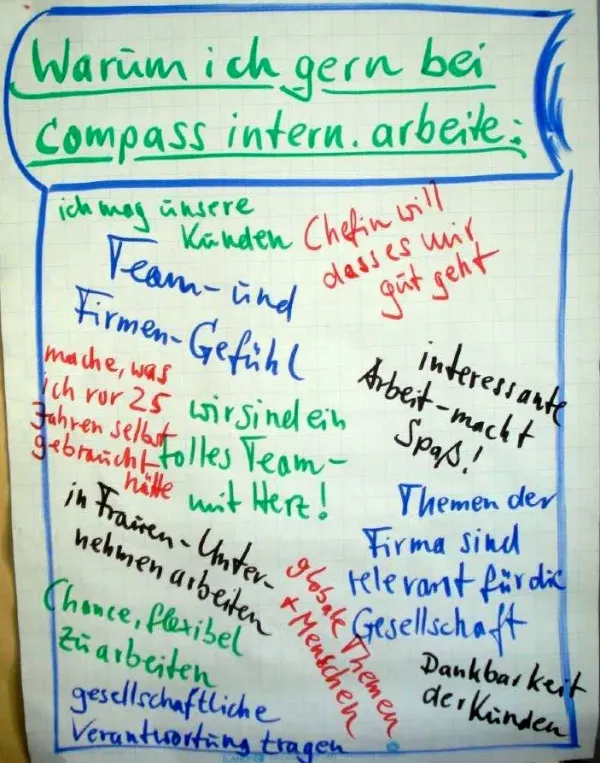 Warum ich gern bei
compass intern. arbeite:
ich mag unsere
Kunden
Chefin will
dass es mir
gut geht
Team- und
Firmen-Gefühl
mache, was
ich vor 25
Jahren selbst
gebraucht
hätte
wir sind ein
tolles Team-
mit Herz!
interessante
Arbeit-macht
Spaß!
in Frauen-Unter-
nehmen arbeiten
Themen der
Firma sind
relevant für die
Gesellschaft
globale Themen
+ Menschen
Chance, flexibel
zu arbeiten
Dankbarkeit
der Kunden
gesellschaftliche
Verantwortung tragen